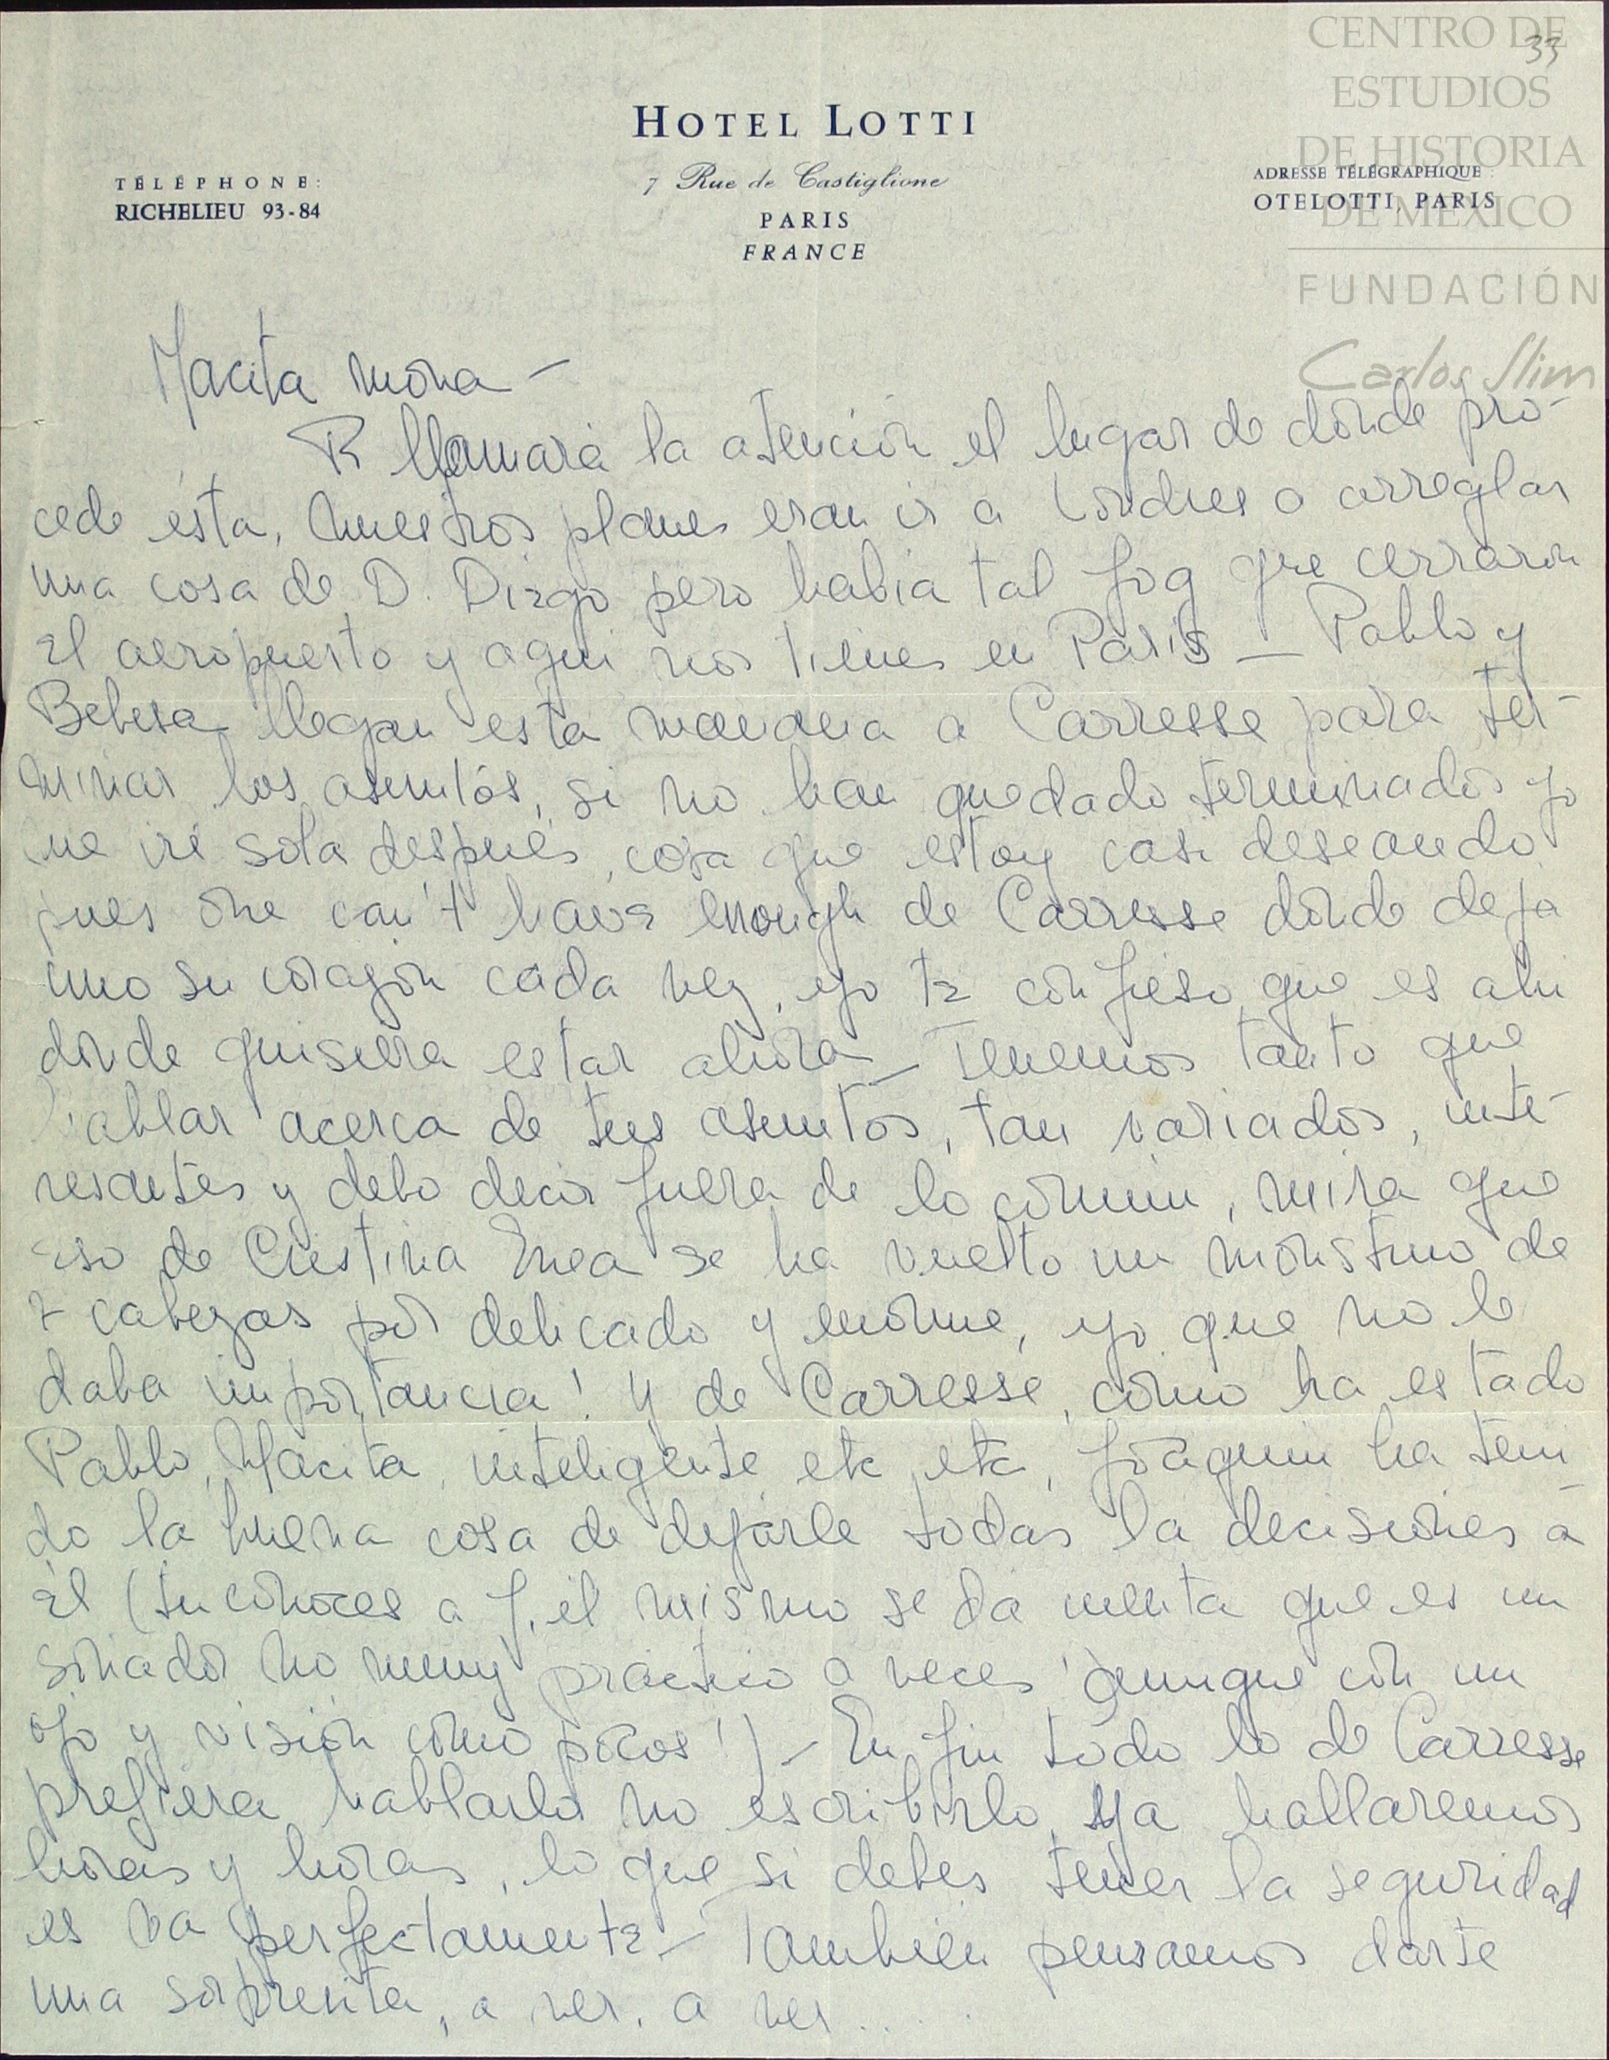 33
CENTRO DE
ESTUDIOS
DE HISTORIA
DE MÉXICO
FUNDACIÓN
Carlos Slim
HOTEL LOTTI
7 Rue de Castiglione
PARIS
FRANCE
TÉLÉPHONE:
RICHELIEU 93-84
ADRESSE TÉLÉGRAPHIQUE:
OTELOTTI, PARIS
Macita mona –
Te llamará la atención el lugar de donde pro-
cede ésta, nuestros planes eran ir a Londres a arreglar
una cosa de D. Diego pero había tal fog que cerraron
el aeropuerto y aqui nos tienes en Paris – Pablo y
Bebesa llegan esta mañana a Carresse para ter-
minar los asuntos, si no han quedado terminados yo
me iré sola después, cosa que estoy casi deseando
pues one can't have enough de Carresse donde deja
uno su corazón cada vez, yo te confieso que es ahi
donde quisiera estar ahora – Tenemos tanto que
hablar acerca de tus asuntos, tan variados, inte-
resantes y debo decir fuera de lo común, mira que
eso de Cristina Enea se ha vuelto un monstruo de
7 cabezas por delicado y enorme, yo que no le
daba importancia! y de Carresse, como ha estado
Pablo, Macita, inteligente etc etc, Joaquin ha teni
do la buena cosa de dejarle todas la decisiones a
él (tu conoces a J. él mismo se da cuenta que es un
soñador no muy práctico a veces aunque con un
ojo y visión como pocos!) – En fin todo lo de Carresse
prefiera hablarlo no escribirlo, ya hallaremos
horas y horas, lo que si debes tener la seguridad
es va perfectamente – También pensamos darte
una sorpresita, a ver, a ver.....